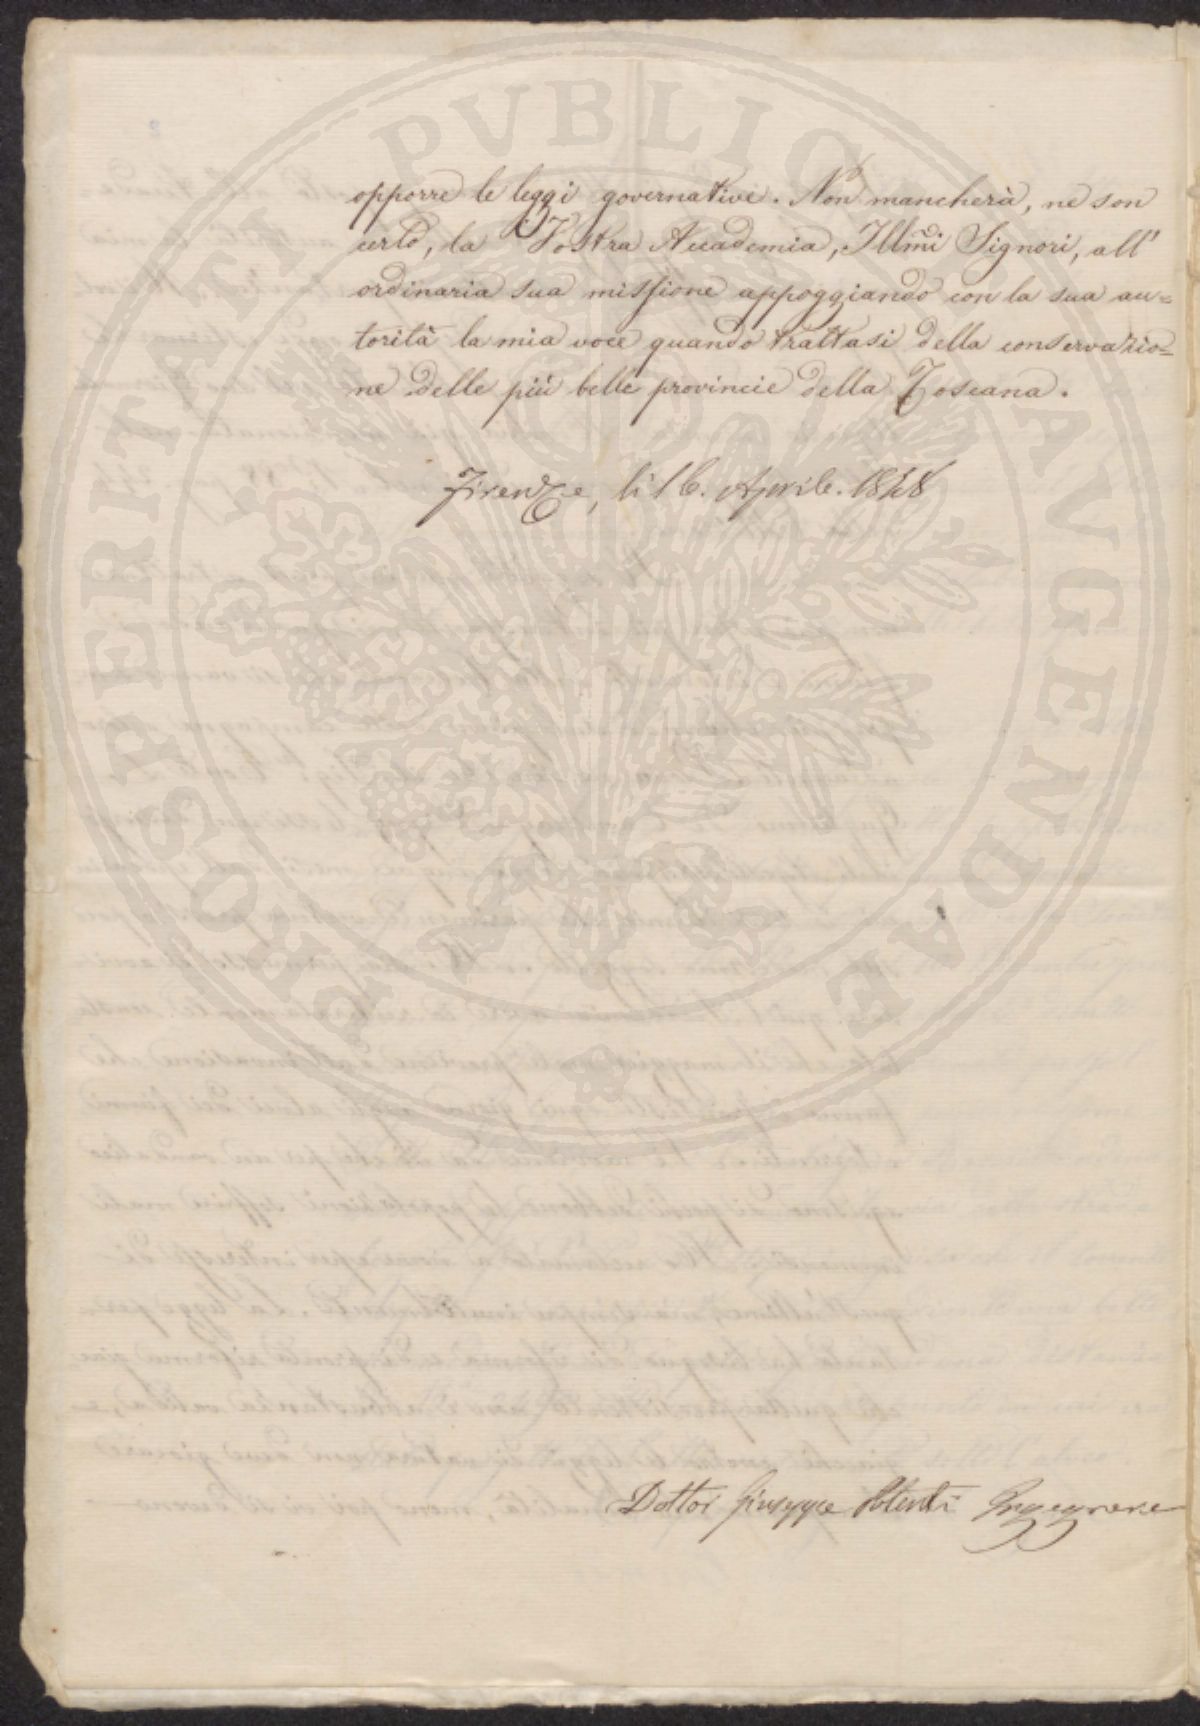 PROSPERITATI PVBLICAE AVGENDAE
opporre le leggi governative. Non mancherà, ne son
certo, la Vostra Accademia, Illmi Signori, all'
ordinaria sua missione appoggiando con la sua au=
torità la mia voce quando trattasi della conservazio=
ne delle più belle provincie della Toscana.
Firenze, li 16. Aprile. 1848
Dottor Giuseppe Potenti Ingegnere